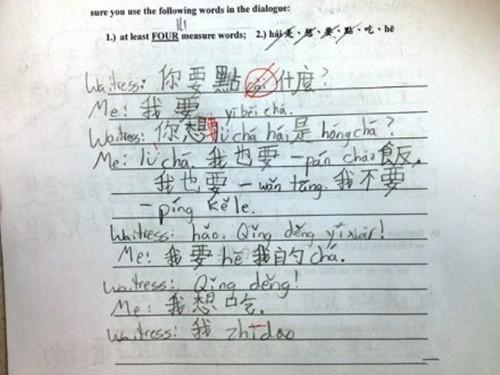 sure you use the following words in the dialogue:
1.) at least FOUR measure words; 2.) hái 是、想、要、點、吃、hē
Waitress: 你要點 什麼?
Me: 我要 yì bēi chá.
Waitress: 你想要 lǜ chá hái是 hóngchá?
Me: lǜ chá. 我也要 一pán chǎo飯.
我也要 一wǎn tāng. 我不要
一píng Kě lè.
Waitress: hǎo. Qǐng děng yíxiàr!
Me: 我要 hē 我自的 chá.
Waitress: Qǐng děng!
Me: 我想吃.
Waitress: 我 zhīdao